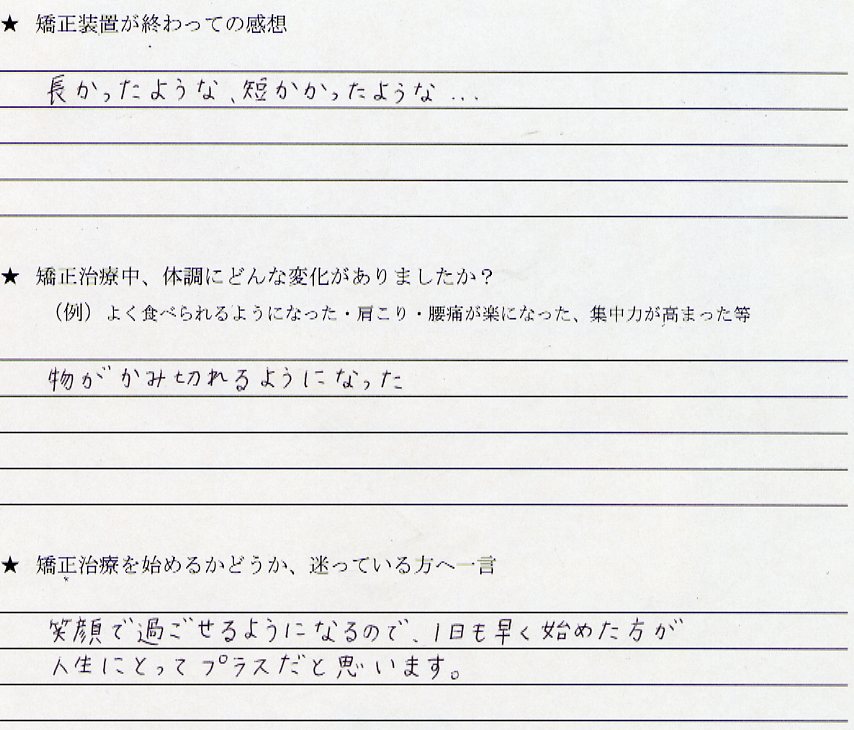 ★ 矯正装置が終わっての感想
長かったような、短かかったような...
★ 矯正治療中、体調にどんな変化がありましたか？
（例）よく食べられるようになった・肩こり・腰痛が楽になった、集中力が高まった等
物がかみ切れるようになった
★ 矯正治療を始めるかどうか、迷っている方へ一言
笑顔で過ごせるようになるので、1日も早く始めた方が
人生にとってプラスだと思います。